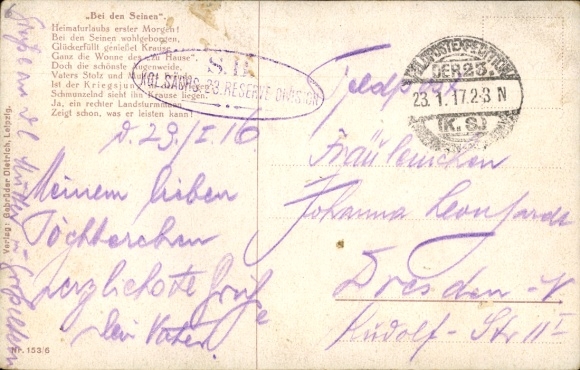 „Bei den Seinen".
Heimaturlaubs erster Morgen!
Bei den Seinen wohlgeborgen,
Glückerfüllt genießet Krause
Ganz die Wonne des „zu Hause"
Doch die schönste Augenweide,
Vaters Stolz und
Ist der Kriegsjun
Schmunzelnd sieht ihn Krause liegen.
Ja, ein rechter Landsturmmann
Zeigt schon, was er leisten kann!
S. B.
KGL. SÄCHS. 23. RESERVE-DIVISION
FELDPOSTEXPEDITION
DER 23.
23.1.17.2-3 N
(K.S.)
Feldpost
D. 23./I. 16
Meinem lieben
Töchterchen
herzlichste Grüße
Dein Vater.
Fräuleinchen
Johanna Leonhardt
Dresden-N
Rudolf-Str 11 I
Verlag: Gebrüder Dietrich, Leipzig.
Nr. 153/6